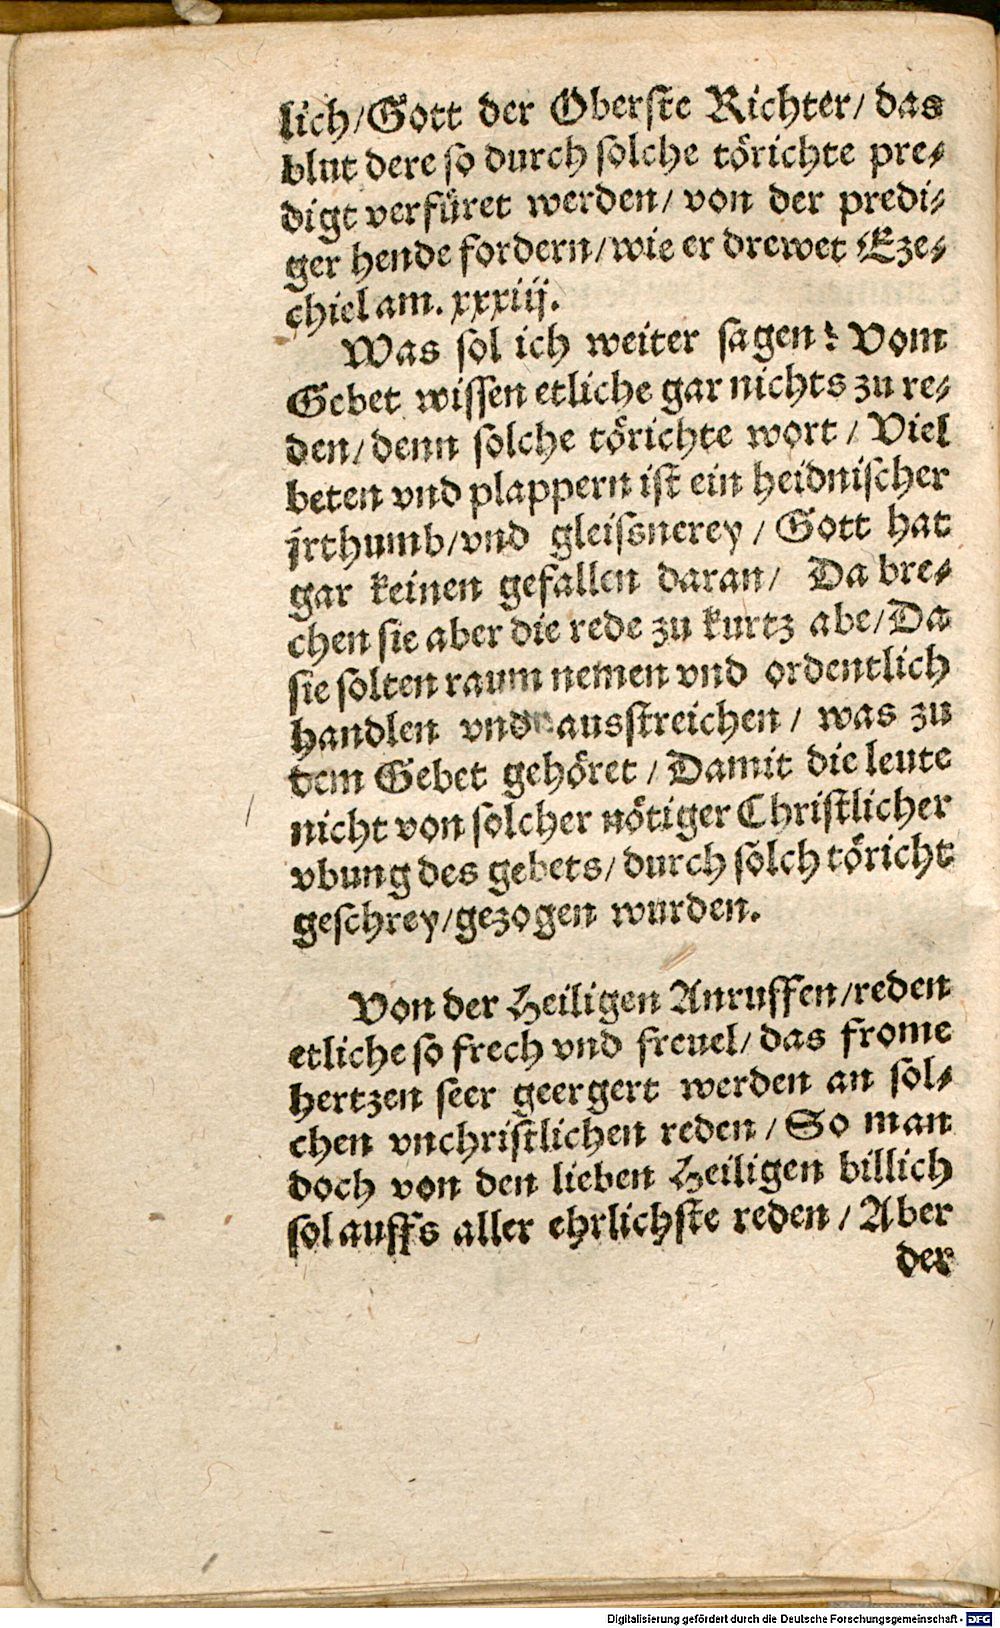 lich/Gott der Oberste Richter/ das
blut dere so durch solche törichte pre-
digt verfüret werden/ von der predi-
ger hende fordern/wie er drewet Eze-
chiel am. xxxiij.
Was sol ich weiter sagen? Vom
Gebet wissen etliche gar nichts zu re-
den/ denn solche törichte wort / Viel
beten vnd plappern ist ein heidnischer
jrthumb/vnd gleissnerey / Gott hat
gar keinen gefallen daran/ Da bre-
chen sie aber die rede zu kurtz abe/Da
sie solten raum nemen vnd ordentlich
handlen vnd ausstreichen / was zu
dem Gebet gehöret / Damit die leute
nicht von solcher nötiger Christlicher
vbung des gebets/ durch solch töricht
geschrey/gezogen wurden.
Von der Heiligen Anruffen/reden
etliche so frech vnd freuel/ das frome
hertzen seer geergert werden an sol-
chen vnchristlichen reden / So man
doch von den lieben Heiligen billich
sol auffs aller ehrlichste reden / Aber
der
Digitalisierung gefördert durch die Deutsche Forschungsgemeinschaft - DFG